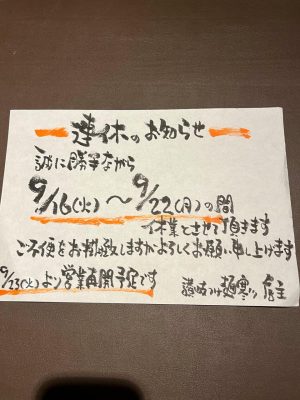 連休のお知らせ
誠に勝手ながら
9/16(火)〜9/22(月)の間
休業とさせて頂きます
ご不便をお掛け致しますがよろしくお願い申し上げます
9/23(火)より営業再開予定です
讃岐つけ麺寒川 店主